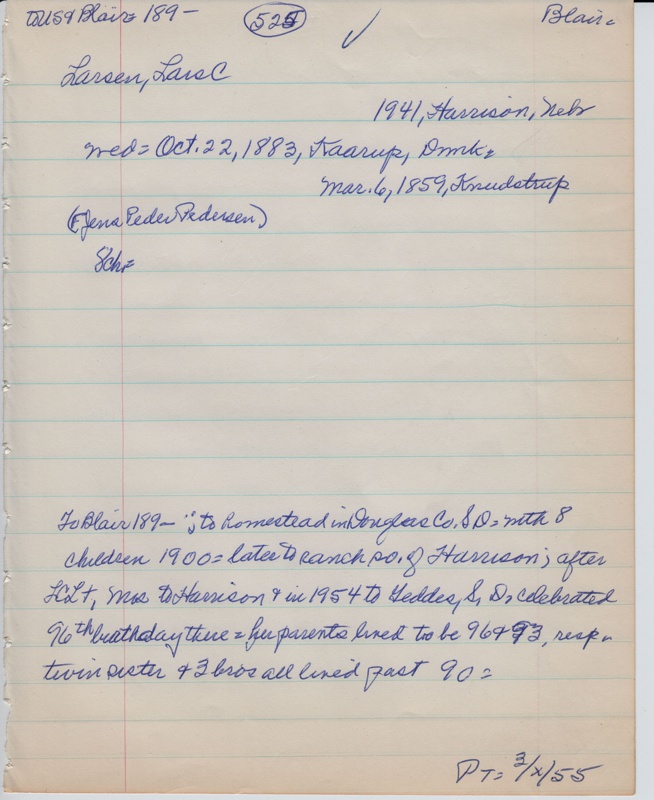 to US & Blair = 189-
525
Blair =
Larsen, Lars C
1941, Harrison, Nebr
wed = Oct. 22, 1883, Kaarup, Dmk =
Mar. 6, 1859, Knudstrup
(F Jens Peder Pedersen)
8ch =
To Blair 189- ; to homestead in Douglas Co. S D = with 8
children 1900 = later to ranch so. of Harrison; after
LCL +, Mrs to Harrison & in 1954 to Geddes, S. D. celebrated
96th birthday there = her parents lived to be 96 & 93, resp.
twin sister & 3 bros all lived past 90 =
PT = 3/X/55